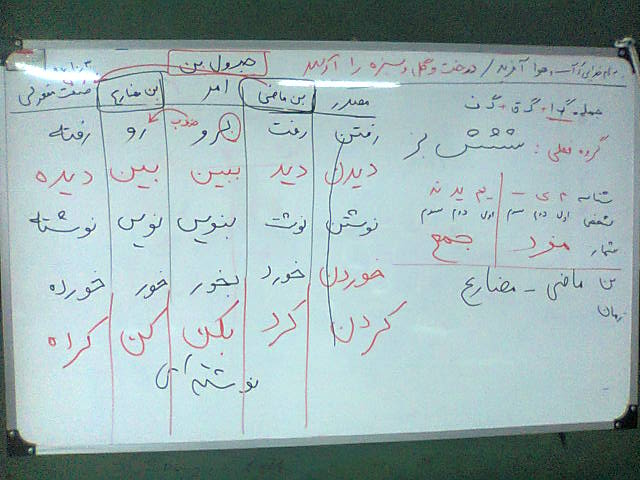 به نام خدایی که آب و هوا آفرید / درخت و گل و سبزه را آفرید
جدول بن
مصدر بن ماضی امر بن مضارع صفت مفعولی
رفتن رفت برو رو رفته
حذف ب
دیدن دید ببین بین دیده
نوشتن نوشت بنویس نویس نوشته
خوردن خورد بخور خور خورده
کردن کرد بکن کن کرده
نوشته ای
جمله: گ ا + گ ف
گروه فعلی: شش بز
شناسه م ی - یم ید ند
شخص اول دوم سوم اول دوم سوم
شمار مفرد جمع
بن ماضی - مضارع
زمان